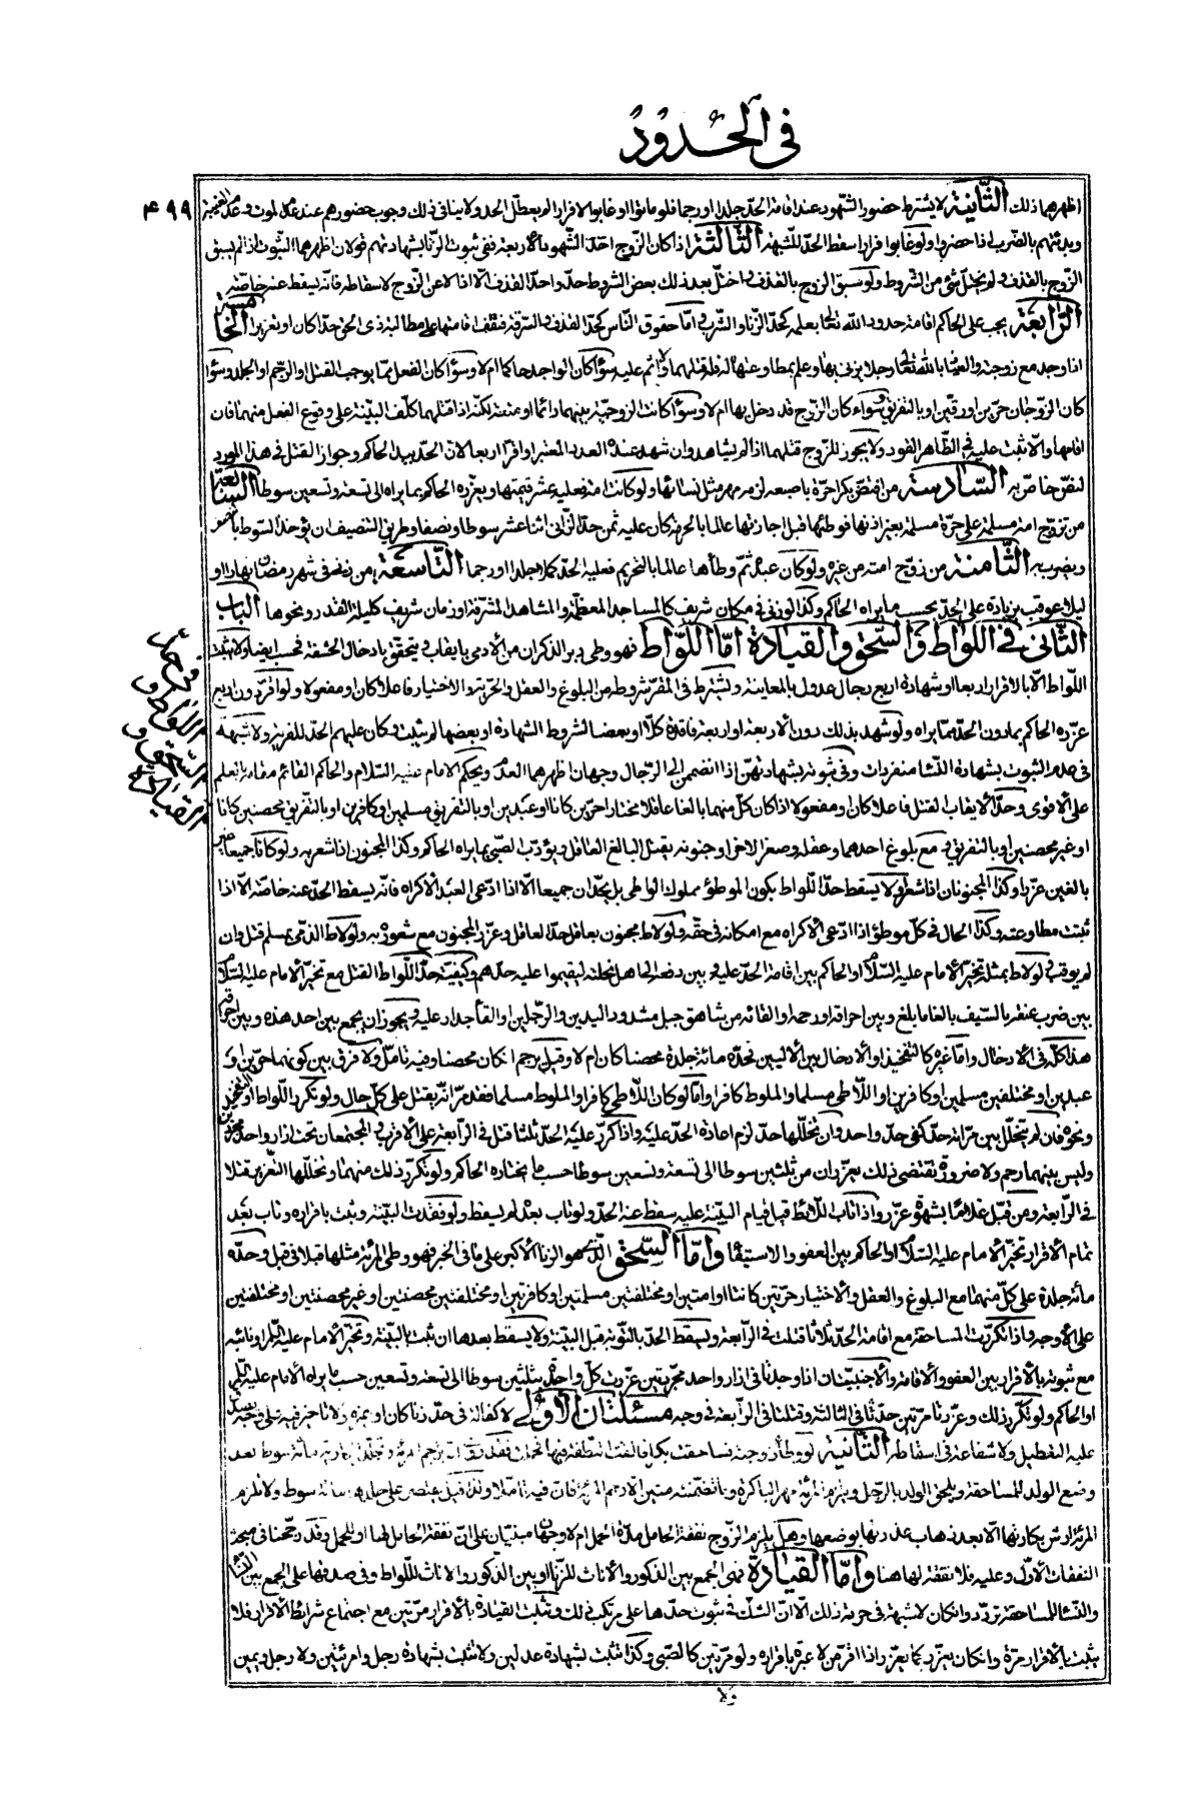 في الحدود
۴۹۹
اظهرهما ذلك الثانية لا يشترط حضور الشهود عند اقامة الحد جلدا او رجما فلو ماتوا او غابوا لا فرارا لم يعطل الحد ولا ينافي ذلك وجوب حضورهم عند عدم الموت وعدم الغيبة
وبدئتهم بالضرب اذا حضروا ولو غابوا فرارا سقط الحد للشبهة الثالثة اذا كان الزوج احد الشهود الاربعة ففي ثبوت الزنا بشهادتهم قولان اظهرهما الثبوت اذا لم يسبق
الزوج بالقذف ولم يختل شئ من الشروط ولو سبق الزوج بالقذف او اختل بعد ذلك بعض الشروط حد واحد القذف الا اذا لاعن الزوج لاسقاطه فانه يسقط عنه خاصة
الرابعة يجب على الحاكم اقامة حدود الله تعالى بعلمه كحد الزنا والشرب واما حقوق الناس كحد القذف والسرقة فتقف اقامتها على مطالبة ذي الحق حدا كان او تعزيرا الخامسة
اذا وجد مع زوجته والعياذ بالله تعالى رجلا يزني بها وعلم بمطاوعتها له فله قتلهما ولا اثم عليه سواء كان الواجد حاكما ام لا وسواء كان الفعل مما يوجب القتل او الرجم او الجلد وسواء
كان الزوجان حرين او رقين او بالتفريق وسواء كان الزوج قد دخل بها ام لا وسواء كانت الزوجية بينهما دائما او متعة لكنه اذا قتلهما كلف البينة على وقوع الفعل منهما فان
اقامها والا ثبت عليه في الظاهر القود ولا يجوز للزوج قتلهما اذا لم يشاهد وان شهد عنده العدد المعتبر او اقرا اربعا لان الحد بيد الحاكم وجواز القتل في هذا المورد
لنص خاص به السادسة من افتض بكرا حرة باصبعه لزمه مهر مثل نسائها ولو كانت امة فعليه عشر قيمتها ويعزره الحاكم بما يراه الى تسعة وتسعين سوطا السابعة
من تزوج امة مسلمة على حرة مسلمة بغير اذنها فوطئها قبل اجازتها عالما بالحرمة كان عليه ثمن حد الزاني اثنا عشر سوطا ونصفا وطريق التنصيف ان يؤخذ السوط بالنصف
ويضرب به الثامنة من زوج امته من غيره ولو كان عبده ثم وطأها عالما بالتحريم فعليه الحد كملا جلدا او رجما التاسعة من زنى في شهر رمضان نهارا او
ليلا عوقب بزيادة على الحد بحسب ما يراه الحاكم وكذا لو زنى في مكان شريف كالمساجد المعظمة والمشاهد المشرفة او زمان شريف كليلة القدر ونحوها الباب
الثاني في اللواط والسحق والقيادة اما اللواط فهو وطي دبر الذكران من الآدمي بايقاب ويتحقق بادخال الحشفة فحسب ايضا ولا يثبت
اللواط الا بالاقرار اربعا او شهادة اربع رجال عدول بالمعاينة ويشترط في المقر شروط من البلوغ والعقل والحرية والاختيار فاعلا كان او مفعولا ولو اقر دون اربع
عزره الحاكم بما دون الحد مما يراه ولو شهد بذلك دون الاربعة او اربعة فاقدة كلا او بعضا لشروط الشهادة او بعضها لم يثبت وكان عليهم الحد للفرية ولا شبهة
في عدم الثبوت بشهادة النساء منفردات وفي ثبوته بشهادتهن اذا انضممن الى الرجال وجهان اظهرهما العدم ويحكم الامام عليه السلام والحاكم القائم مقامه بالعلم
على الاقوى وحد الايقاب القتل فاعلا كان او مفعولا اذا كان كل منهما بالغا عاقلا مختارا حرين كانا او عبدين او بالتفريق مسلمين او كافرين او بالتفريق محصنين كانا
او غير محصنين او بالتفريق ومع بلوغ احدهما وعقله وصغر الاخر او جنونه يقتل البالغ العاقل ويؤدب الصبي بما يراه الحاكم وكذا المجنون اذا شعر به ولو كانا جميعا غير
بالغين عزرا وكذا المجنونان اذا شعرا ولا يسقط حد اللواط بكون الموطؤ مملوك الواطي بل يحدان جميعا الا اذا ادعى العبد الاكراه فانه يسقط الحد عنه خاصة الا اذا
ثبتت مطاوعته وكذا الحال في كل موطؤ اذا ادعى الاكراه مع امكانه في حقه ولو لاط مجنون بعاقل حد العاقل وعزر المجنون مع شعوره به ولو لاط الذمي بمسلم قتل وان
لم يوقب ولو لاط بمثله تخير الامام عليه السلام او الحاكم بين اقامة الحد عليه وبين دفعه الى اهل نحلته ليقيموا عليه حدهم وكيفية حد اللواط القتل مع تخير الامام عليه السلام
بين ضرب عنقه بالسيف بالغا ما بلغ وبين احراقه او رجمه او القائه من شاهق جبل مشدود اليدين والرجلين او القاء جدار عليه ويجوز ان يجمع بين احد هذه وبين احراقه
هذا كله في الادخال واما غيره كالتفخيذ او الادخال بين الاليين فحده مائة جلدة محصنا كان ام لا وقيل يرجم ان كان محصنا وفيه تأمل ولا فرق بين كونهما حرين او
عبدين او مختلفين مسلمين او كافرين او اللاطي مسلما والملوط كافرا واما لو كان اللاطي كافرا والملوط مسلما فقد مر انه يقتل على كل حال ولو تكرر اللواط او التفخيذ
ونحوه فان لم يتخلل بين مراته حد كفى حد واحد وان تخللها حد لزم اعادة الحد عليه واذا كرر عليه الحد ثلثا قتل في الرابعة على الاقرب والمجتمعان تحت ازار واحد مجردين
وليس بينهما رحم ولا ضرورة تقتضي ذلك يعزران من ثلثين سوطا الى تسعة وتسعين سوطا حسب ما يختاره الحاكم ولو تكرر ذلك منهما وتخللها التعزير قتلا
في الرابعة ومن قبل غلاما بشهوة عزر واذا تاب اللائط قبل قيام البينة عليه سقط عنه الحد ولو تاب بعده لم يسقط ولو فقدت البينة وثبت باقراره وتاب بعد
تمام الاقرار تخير الامام عليه السلام او الحاكم بين العفو والاستيفاء واما السحق الذي هو الزنا الاكبر على ما في الخبر فهو وطي المرئة مثلها قبلا في قبل وحده
مائة جلدة على كل منهما مع البلوغ والعقل والاختيار حرتين كانتا او امتين او مختلفتين مسلمتين او كافرتين او مختلفتين محصنتين او غير محصنتين او مختلفتين
على الاوجه واذا تكررت المساحقة مع اقامة الحد ثلاثا قتلت في الرابعة ويسقط الحد بالتوبة قبل البينة ولا يسقط بعدها ان ثبت بالبينة وتخير الامام عليه السلام او نائبه
مع ثبوته بالاقرار بين العفو والاقامة والاجنبيتان اذا وجدتا في ازار واحد مجردتين عزرت كل واحدة بثلثين سوطا الى تسعة وتسعين حسب ما يراه الامام عليه السلام
او الحاكم ولو تكرر ذلك وعزرتا مرتين حدتا في الثالثة وقتلتا في الرابعة في وجه مسئلتان الاولى لا كفالة في حد زنا كان او غيره ولا تاخير فيه على وجه يصدق
عليه التعطيل ولا شفاعة في اسقاطه الثانية لو وطأ زوجته فساحقت بكرا فالقت النطفة فيها فحملت فقد ترجم المرئة وتجلد الجارية مائة سوط بعد
وضع الولد للمساحقة ويلحق الولد بالرجل ويلزم المرئة مهر الباكرة وما تضمنته من رجم المرئة فيه تأمل ولذا قيل يقتصر على جلدها مائة سوط ولا يلزم
المرئة ارش بكارتها الا بعد ذهاب عذرتها بوضعها وهل يلزم الزوج نفقة الحامل مدة الحمل ام لا وجهان مبنيان على ان نفقة الحامل لها او للحمل وقد رجحنا في مبحث
النفقات الاول وعليه فلا نفقة لها هنا واما القيادة فهي الجمع بين الذكور والاناث للزنا او بين الذكور والاناث للواط وفي صدقها على الجمع بين النساء
والنساء للمساحقة تردد وان كان لا شبهة في حرمة ذلك الا ان الشك في ثبوت حدها على مرتكب ذلك وتثبت القيادة بالاقرار مرتين مع اجتماع شرائط الاقرار فلا
يثبت بالاقرار مرة وان كان يعزر كما يعزر اذا اقر من لا عبرة باقراره ولو مرتين كالصبي وكذا تثبت بشهادة عدلين ولا تثبت بشهادة رجل وامرئتين ولا رجل ويمين
في حد
اللواط و
السحق و
القيادة
ولا